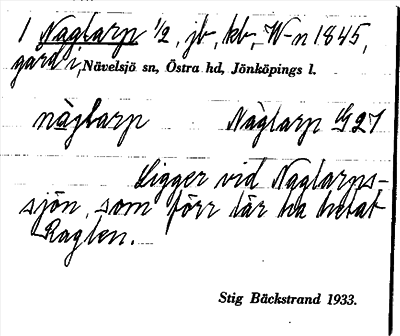 1 Näglarp 1/2, jb, kb, W-n 1845,
gård i, Nävelsjö sn, Östra hd, Jönköpings l.
näglarp Näglarp G27
Ligger vid Naglarps-
sjön, som förr lär ha hetat
Raglen.
Stig Bäckstrand 1933.